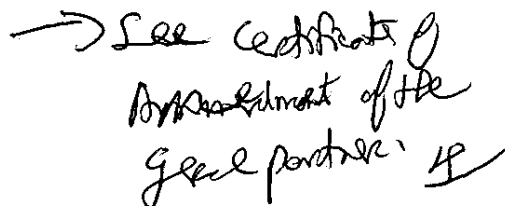 → See Certificate of
Amendment of the
general partner.